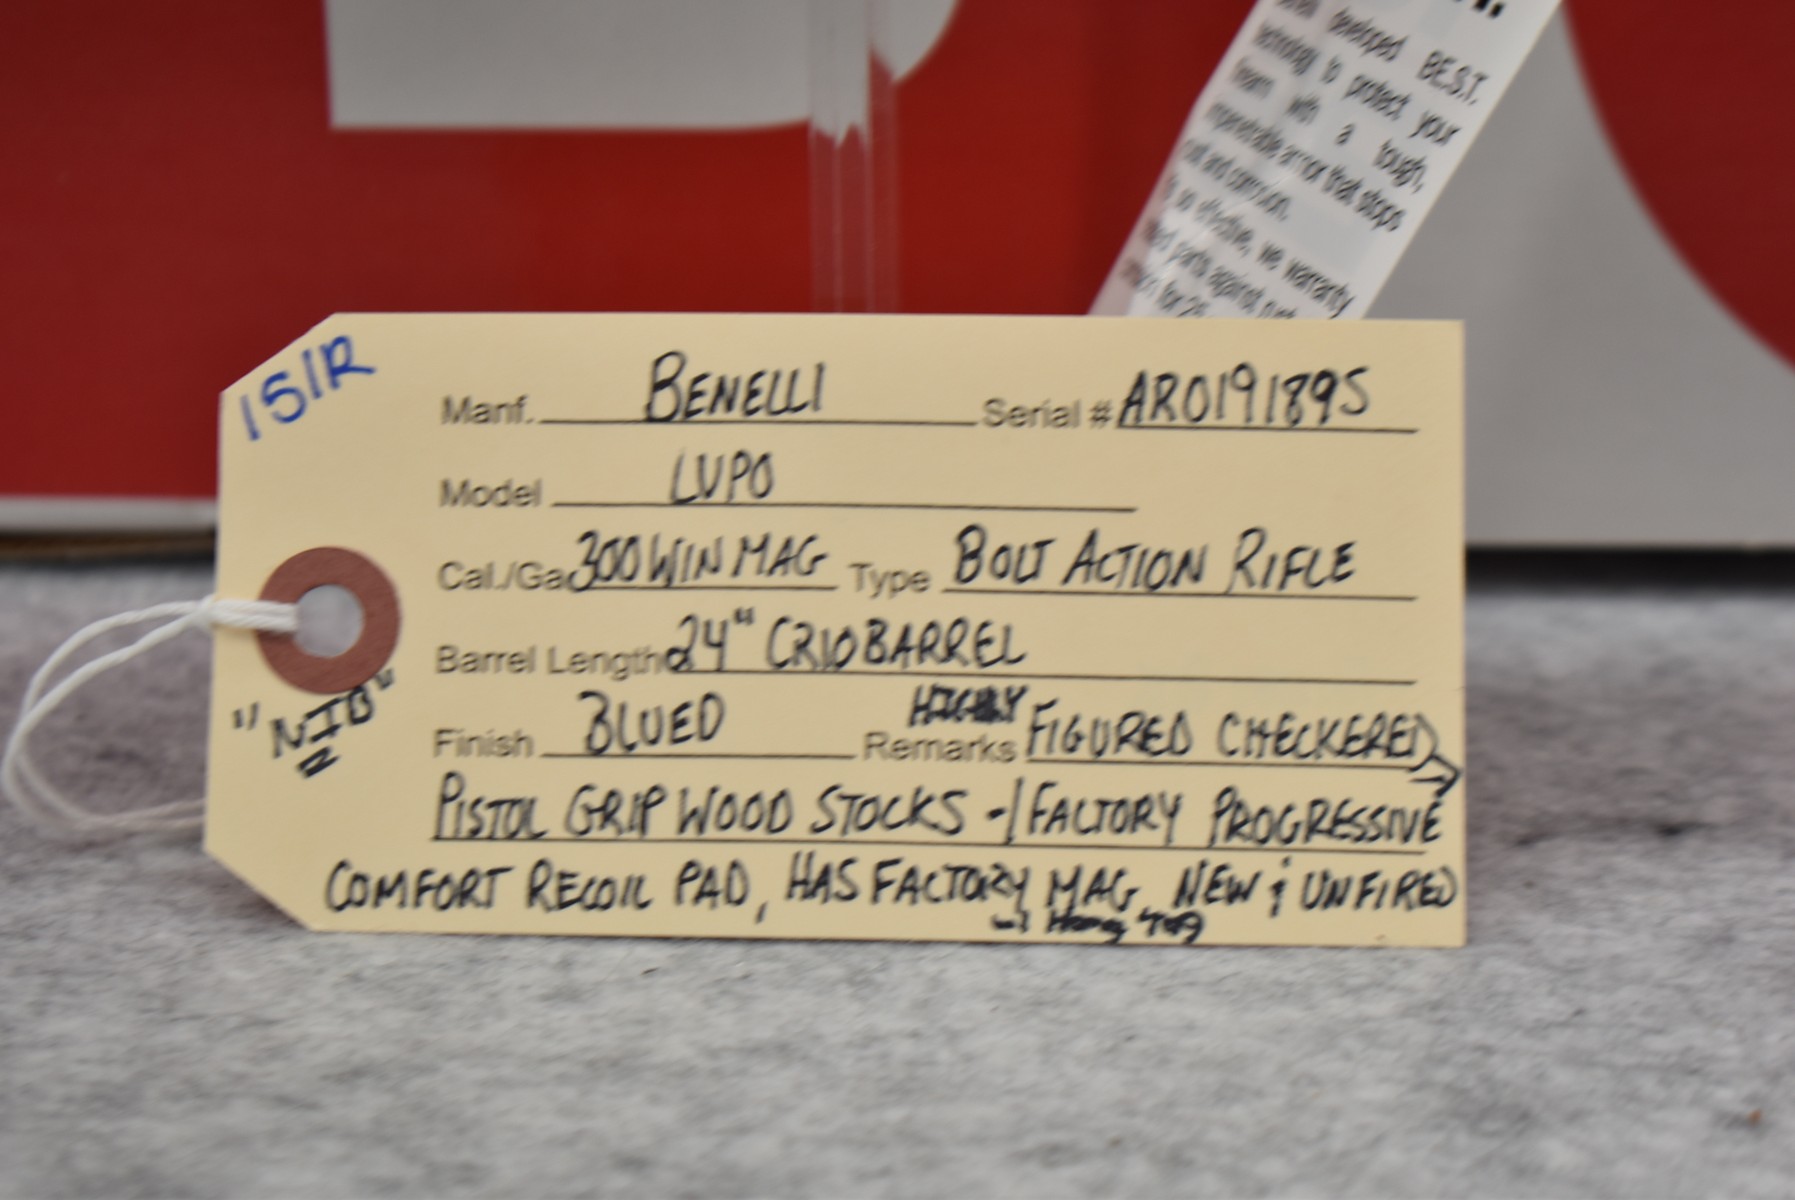 developed B.E.S.T.
to protect your
with a tough,
armor that stops
and corrosion.
so effective, we warranty
parts against rust
for 25
151R
Manf. BENELLI Serial # AR019189S
Model LUPO
Cal./Ga 300 WIN MAG Type BOLT ACTION RIFLE
Barrel Length 24" CRIO BARREL
Finish BLUED Remarks HIGHLY FIGURED CHECKERED
"NIB"
PISTOL GRIP WOOD STOCKS -/ FACTORY PROGRESSIVE
COMFORT RECOIL PAD, HAS FACTORY MAG, NEW & UNFIRED
w/ Hang Tag